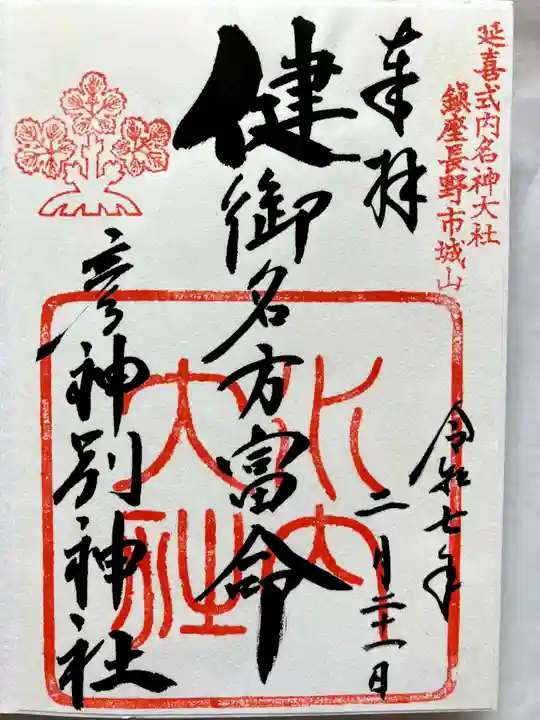 延喜式内名神大社
鎮座長野市城山
奉拝
健御名方富命
彦神別神社
水内
大社
令和七年
二月二十一日